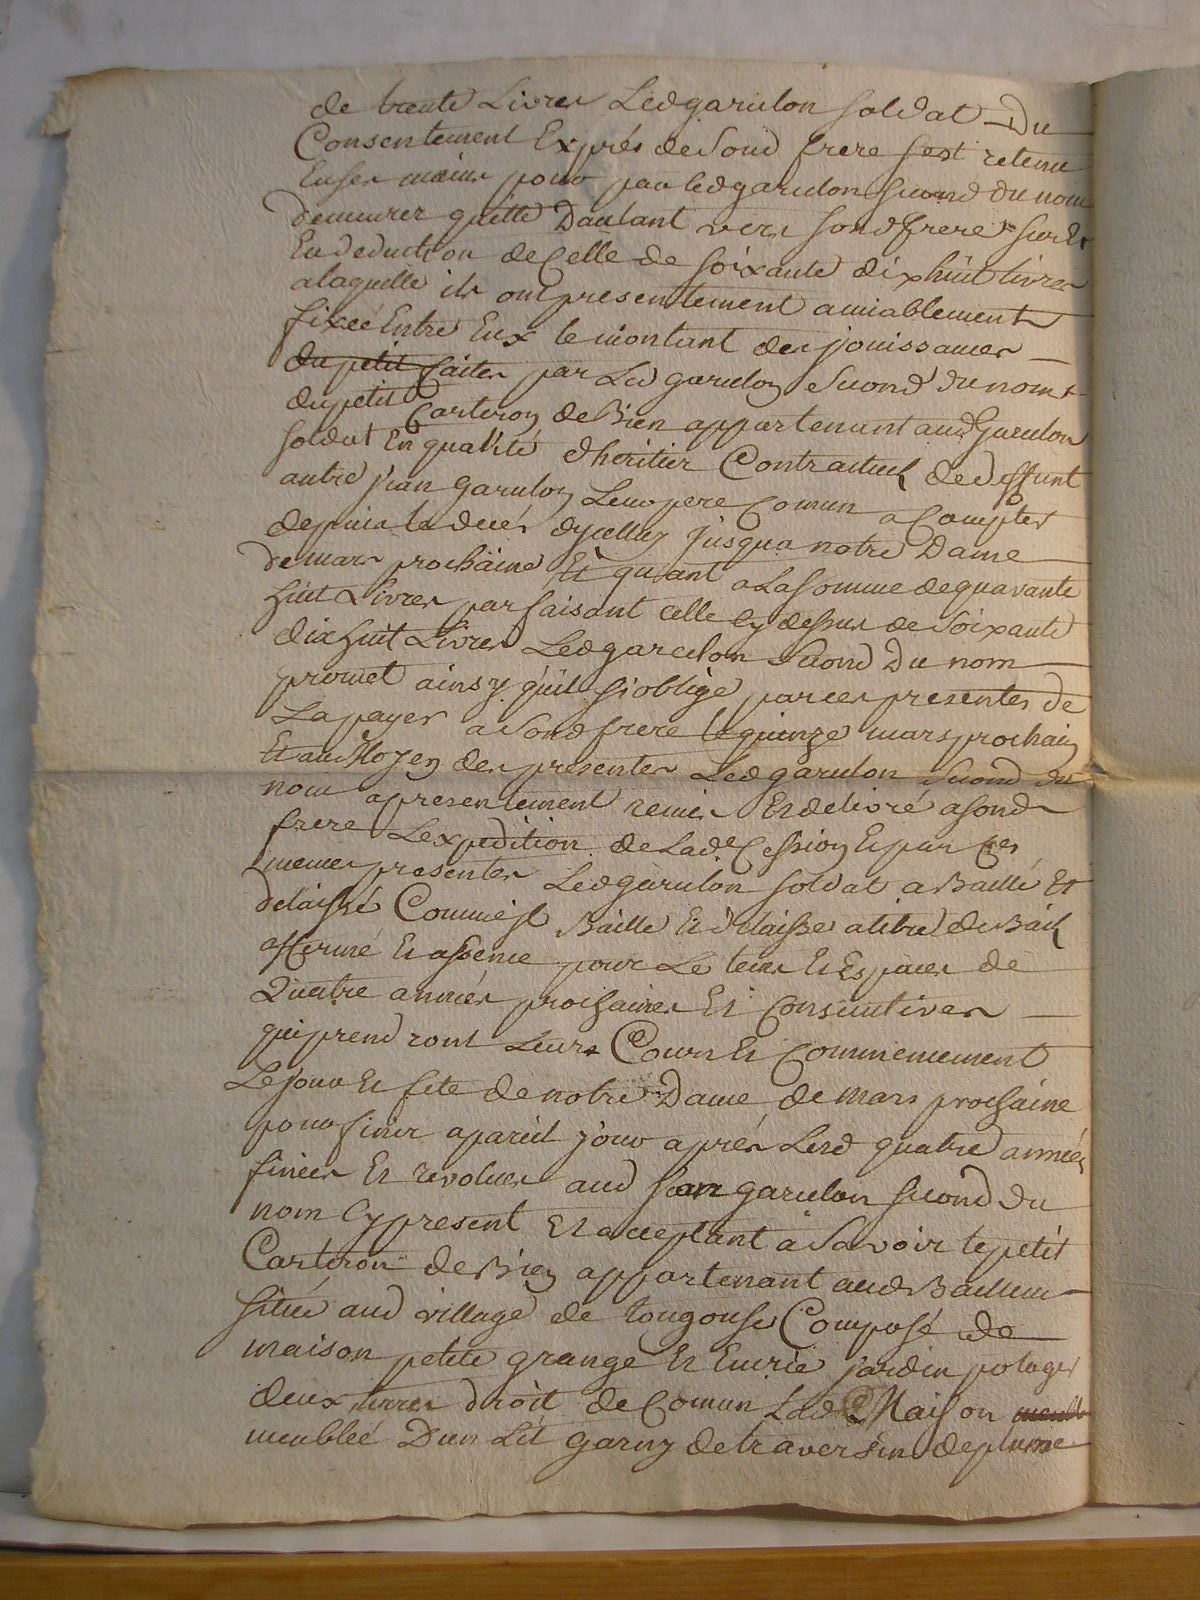 de trente Livres Led garulon soldat Du
Consentement Exprés de Sond frere sest retenu
En ses mains pour par led garulon second du nom
demeurer quitte Dautant vers sond frere sur Et
En deduction de Celle de soixante dix huit livres
a laquelle ils ont presentement amiablement
fixée Entre Eux le montant des jouissances
du petit faites par Led garulon Second du nom
du petit Carteron de Bien appartenant aud Garulon
soldat En qualité dheritier Contractuel de deffunt
autre jean garulon Leur pere Comun a Compter
depuis le decés dyceluy jusqua notre Dame
de mars prochaine Et quant a La somme de quarante
huit Livres parfaisant celle Cy dessus de Soixante
dix huit Livres Led garulon Second Du nom
promet ainsy quil soblige par ces presentes de
La payer a Sond frere le quinze mars prochain
Et au Moyen des presentes Led garulon Second du
nom a presentement remis Et delivré a sond
frere L'expedition de Lade Cession Et par Ces
memes presentes Led garulon soldat a Baillé Et
delaissé Comme Baille Et delaisse a titre de Bail
afferme Et assence pour Le tems Et Espaces de
Quatre années prochaines Et Consecutives
qui prendront Leurs Cours Et Commencement
Le jour Et fete de notre Dame de mars prochaine
pour finir a pareil jour aprés Lesd quatre années
finies Et revolues aud Jean garulon second du
nom Cy present Et acceptant a Savoir le petit
Carteron de Bien appartenant aud Bailleur
situé aud village de Composé de
maison petite grange Et Ecurie jardin potager
deux terres droit de Comun Lad Maison
meublée Dun Lit garny de traversin de plume